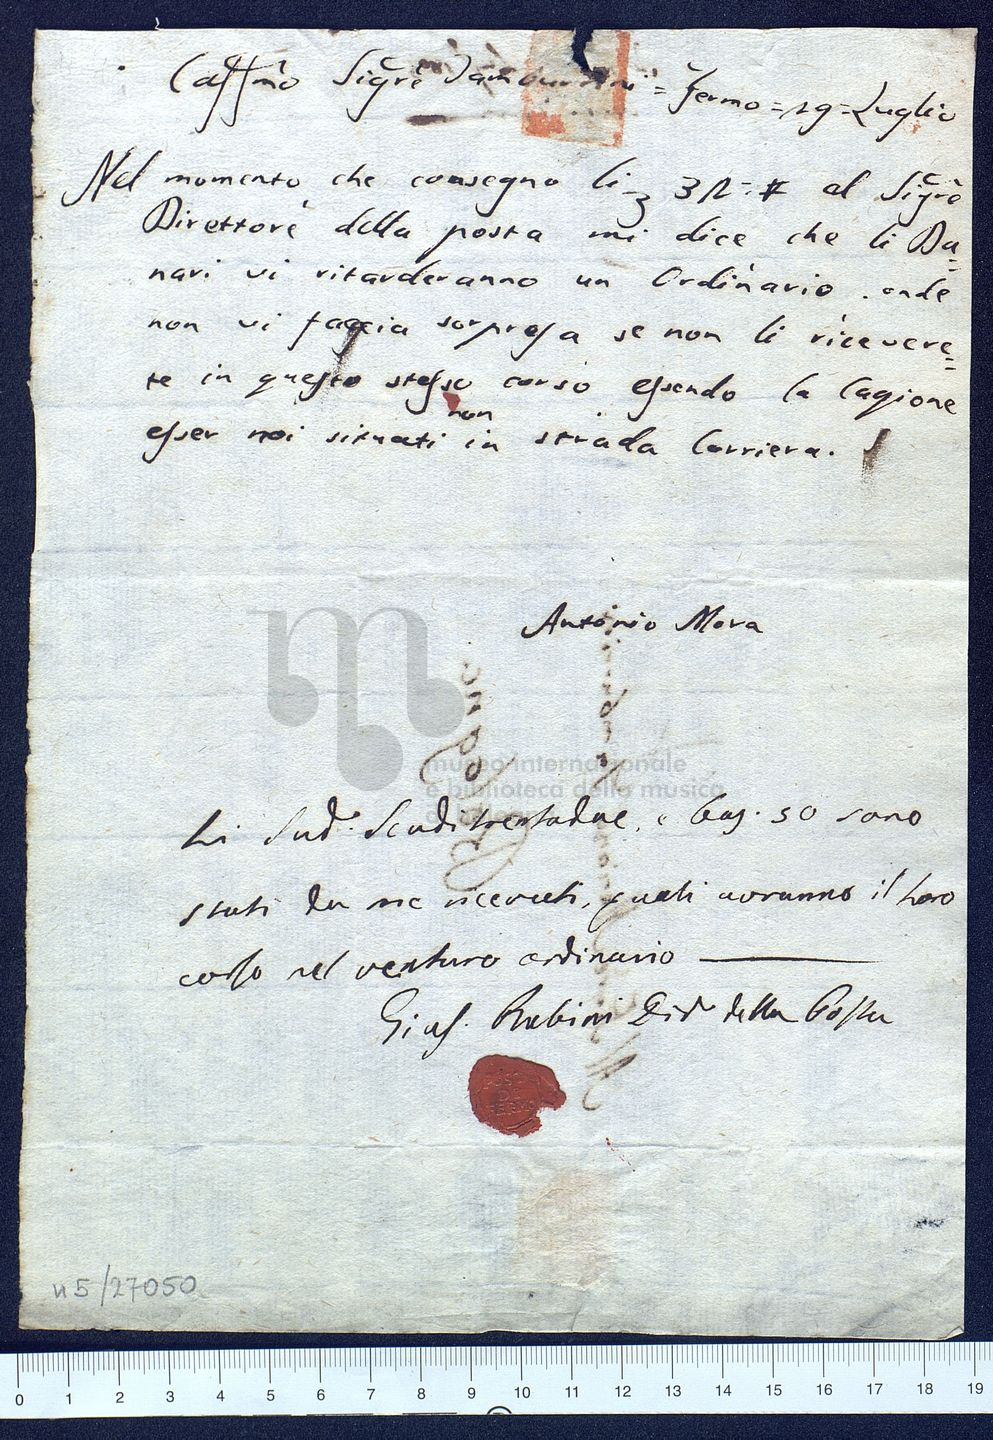 Caſſmo Sigre Tamburini = Fermo = 19 = Luglio
Nel momento che consegno li 32 = al Sigre
Direttore della posta mi dice che li Da=
nari vi ritarderanno un Ordinario. onde
non vi faccia sorpreſa se non li ricevere=
te in queſto steſso corso eſsendo la Cagione
eſser noi situati non in strada Corriera.
Antonio Mora
museo internazionale
e biblioteca della musica
Li Sud. Scudi trentadue, e baj. 50 sono
stati da me ricevuti, quali avranno il loro
corſo nel venturo ordinario
Gius. Rubini Dir. della Poſta
n5/27050
0 1 2 3 4 5 6 7 8 9 10 11 12 13 14 15 16 17 18 19